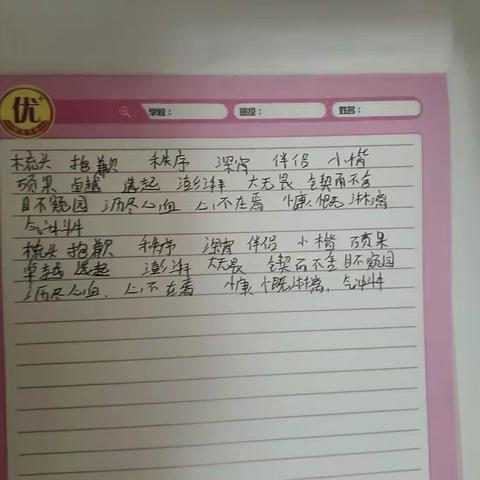 优
学校： 班级： 姓名：
梳头 抱歉 秩序 深宵 伴侣 小楷
硕果 卓越 选起 澎湃 大无畏 锲而不舍
目不窥园 沥尽心血 心不在焉 慷慨淋漓
气冲斗牛
梳头 抱歉 秩序 深宵 伴侣 小楷 硕果
卓越 选起 澎湃 大无畏 锲而不舍 目不窥园
沥尽心血 心不在焉 慷慨淋漓 气冲斗牛